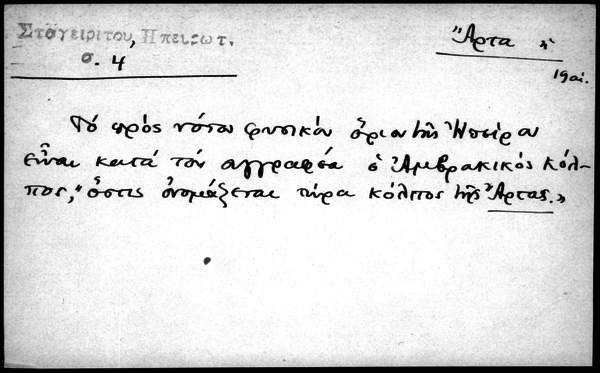 Σταγειρίτου, Ηπειρωτ.
σ. 4
Ἄρτα
19 αἰ.
Τό πρός νότον φυσικόν ὅριον τῆς Ἠπείρου
εἶναι κατά τόν συγγραφέα ὁ Ἀμβρακικός κόλ-
πος, "ὅστις ὀνομάζεται τώρα κόλπος τῆς Ἄρτας.»